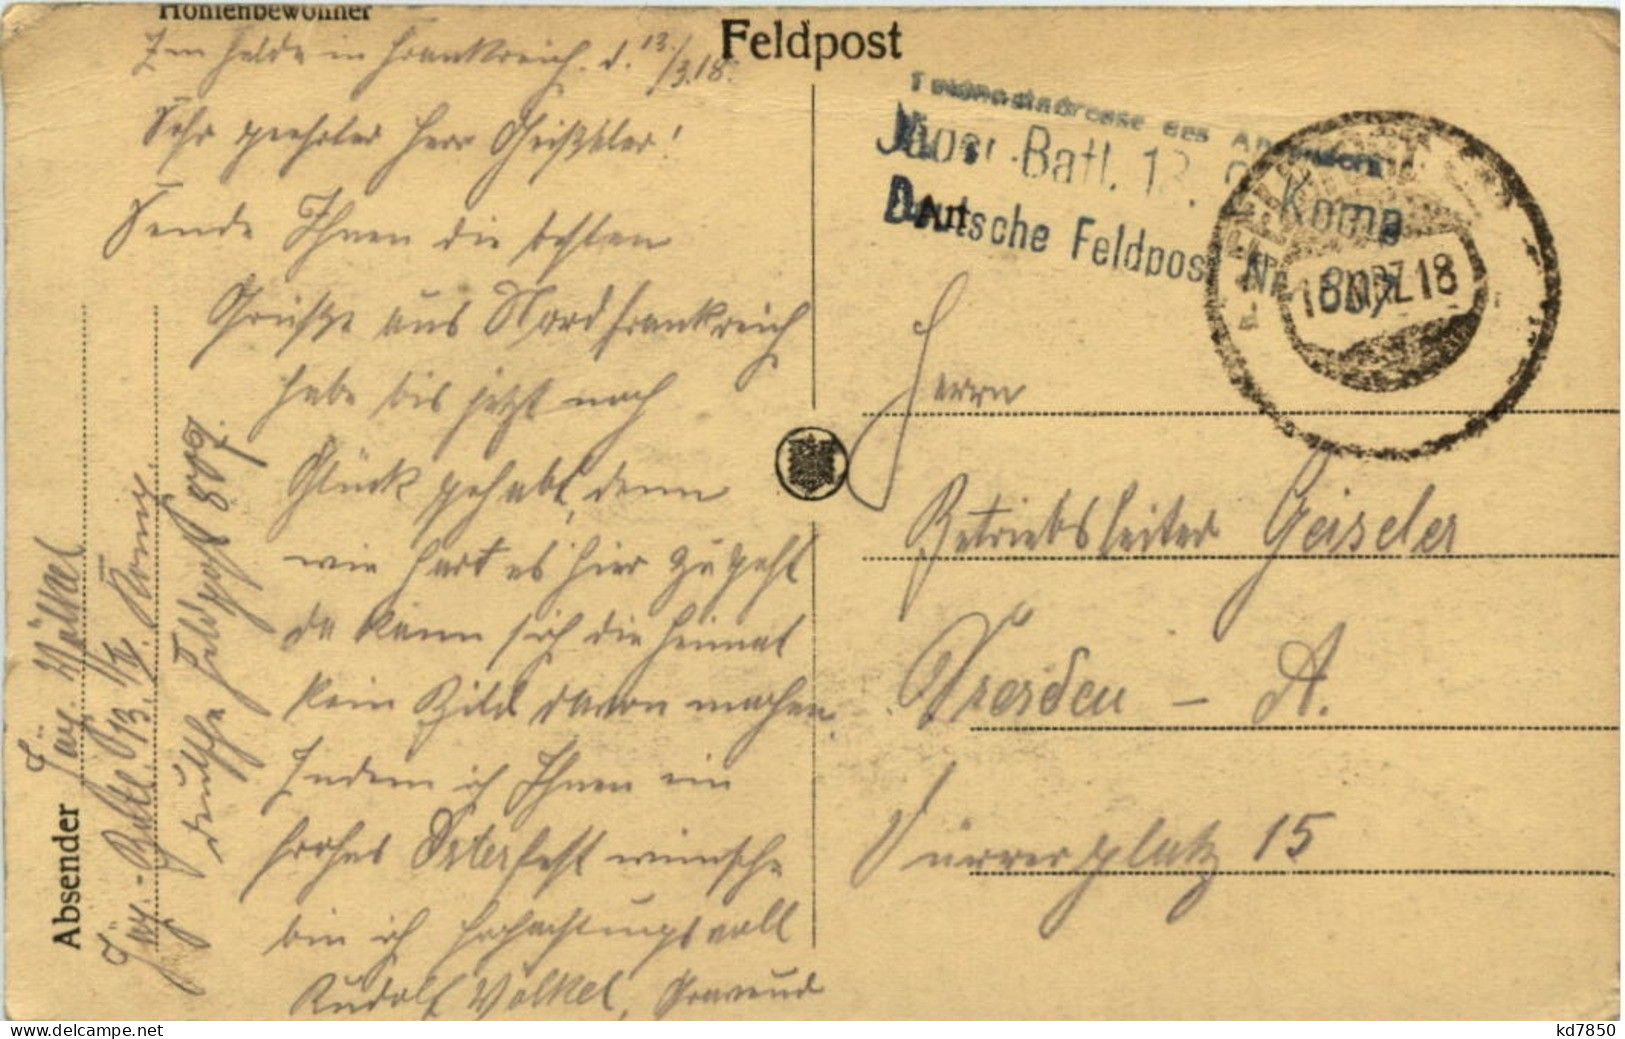 Höhlenbewohner
Feldpost
Im Felde in Frankreich. d. 13./3.18.
Sehr geehrter Herr
Sende Ihnen die besten
Grüße aus Nordfrankreich
habe bis jetzt noch
Glück gehabt, denn
wie hart es hier zugeht
da kann sich die Heimat
kein Bild davon machen.
Indem ich Ihnen ein
frohes Osterfest wünsche
bin ich Hochachtungsvoll
Rudolf Völkel,
Absender
Jäg. Völkel
Jäg.-Batl. 13. Komp.
deutsche Feldpost 807.
Feldpostadresse des Absenders
Jäger-Batl. 13. Komp
Deutsche Feldpost Nr. 807
MRZ 18
An
Herrn
Betriebsleiter Geiseler
Dresden - A.
Dürrerplatz 15
kd7850